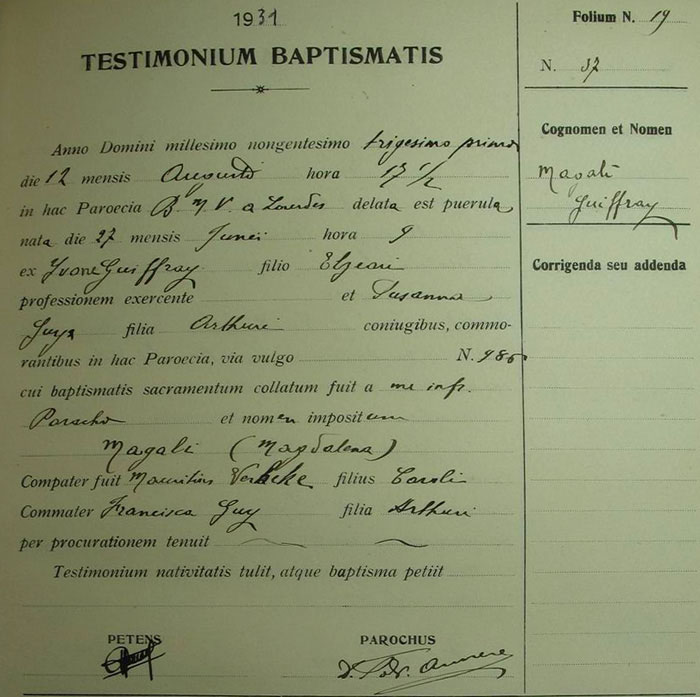 1931
TESTIMONIUM BAPTISMATIS
Anno Domini millesimo nongentesimo trigesimo primo
die 12 mensis Augusti hora 17 1/2
in hac Paroecia B. M. V. a Lourdes delata est puerula
nata die 27 mensis Junii hora 9
ex Yvone Guiffray filio Elzeari
professionem exercente et Susanna
Guys filia Arthuri coniugibus, commo-
rantibus in hac Paroecia, via vulgo N. 986
cui baptismatis sacramentum collatum fuit a me infr.
Parocho et nomen impositum
Magali (Magdalena)
Compater fuit Mauritius filius Caroli
Commater Francisca Guy filia Arthuri
per procurationem tenuit
Testimonium nativitatis tulit, atque baptisma petiit
PETENS
PAROCHUS
Folium N. 19
N. 37
Cognomen et Nomen
Magali
Guiffray
Corrigenda seu addenda